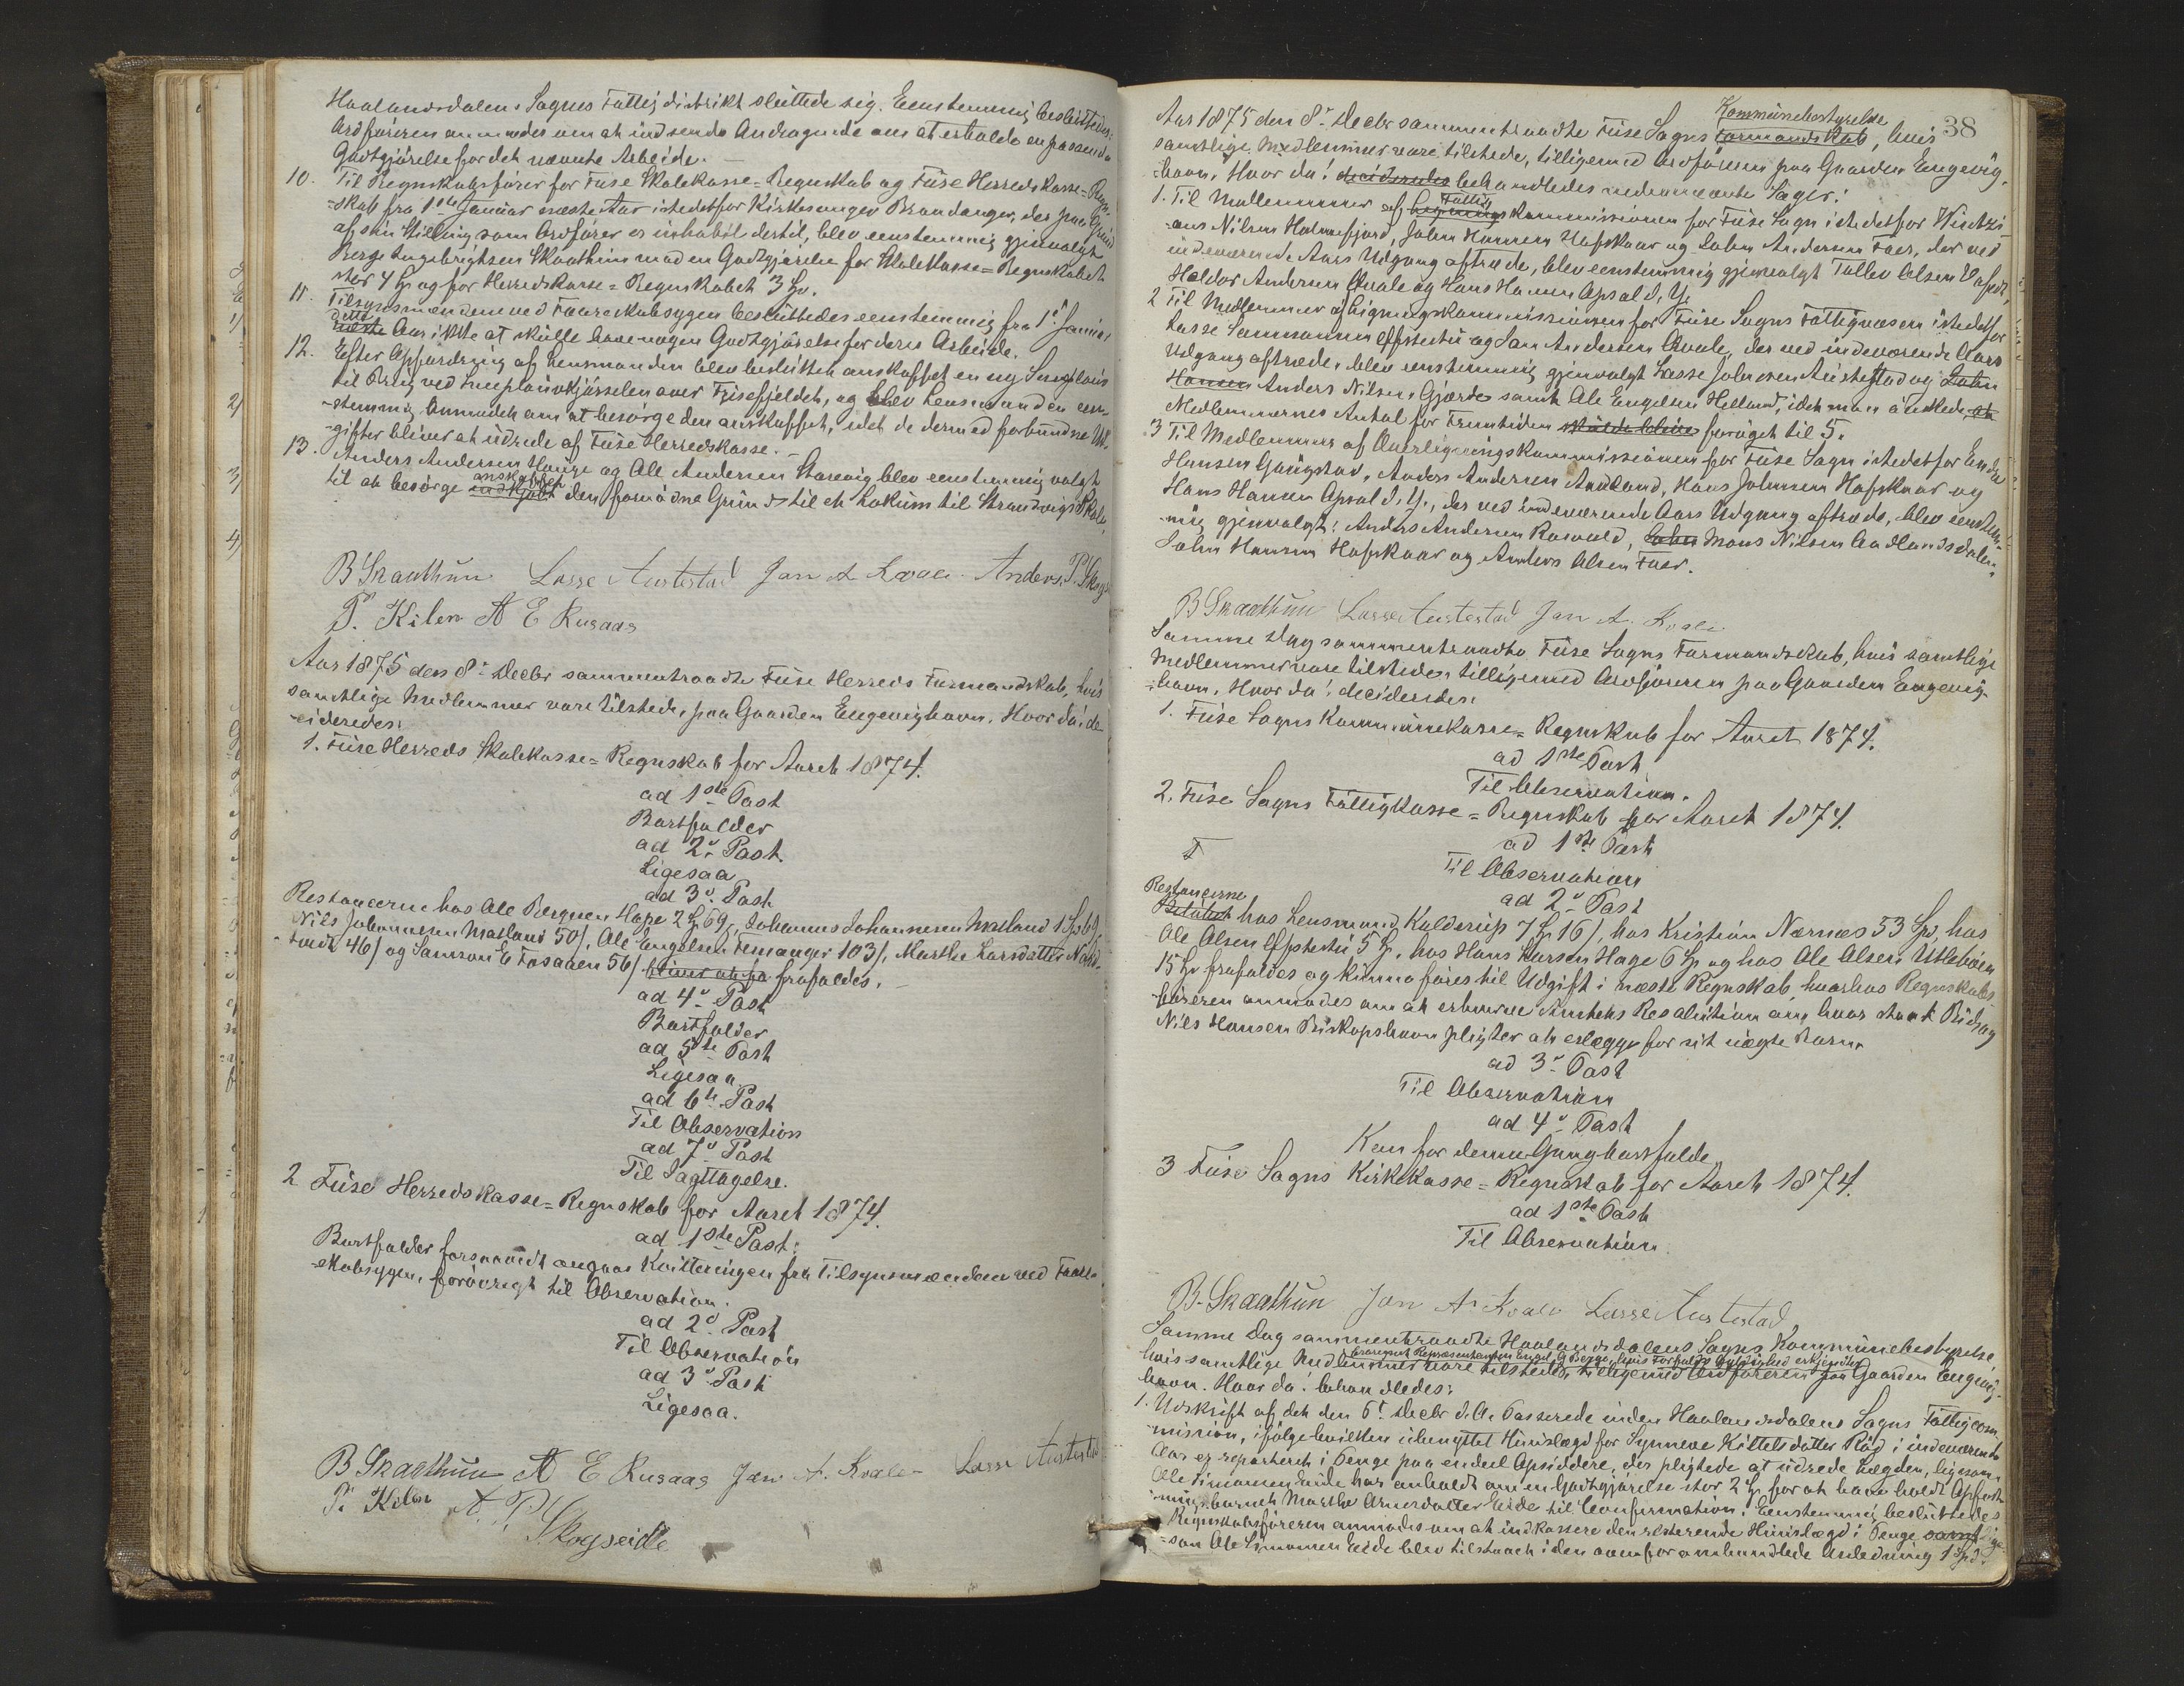 Haalandsdalens Sogns Fattigdistrikt sluttede sig. Eenstemmig besluttedes:
Ordføreren anmodes om at indsende Andragende om at erholde en passende
Godtgjørelse for det nævnte Arbeide.
10. Til Regnskabsfører for Fuse Skolekasse-Regnskab og Fuse Herredskasse-Regn-
-skab fra 1ste Januar næste Aar istedetfor Kirkesanger Brandanger, der paa Grund
af sin Stilling som Ordfører er inhabil dertil, blev eenstemmig gjenvalgt
Berge Ingebrigtsen Skaathun mod en Godtgjørelse for Skolekasse-Regnskabet
stor 4 Sp og for Herredskasse-Regnskabet 3 Sp.
11. Tilsynsmændene ved Faareskabsygen besluttedes eenstemmig fra 1ste Januar
dette
næste Aar ikke at skulle have nogen Godtgjørelse for deres Arbeide.
12. Efter Opfordring af Lensmanden blev besluttet anskaffet en ny Sneploug
til Brug ved Sneplougkjørselen over Fusefjeldet, og blev Lensmanden een-
-stemmig anmodet om at besørge den anskaffet, idet de dermed forbundne Ud-
-gifter bliver at udrede af Fuse Herredskasse.
13. Anders Andersen Hauge og Ole Andersen Storevig blev eenstemmig valgt
anskaffet
til at besørge indkjøbt den fornødne Grund til et Lokum til Strandvigs Skole.
B Skaathun Lasse Austestad Jan A Kvale Anders P. Skogs
P. Kilen A E Rusaas
Aar 1875 den 8de Decbr sammentraadte Fuse Herreds Formandskab, hvis
samtlige Medlemmer vare tilstede, paa Gaarden Engevighavn. Hvor da! de-
-cideredes:
1. Fuse Herreds Skolekasse-Regnskab for Aaret 1874.
ad 1ste Post
Bortfalder
ad 2d Post.
Ligesaa
ad 3d Post
Restancerne hos Ole Børgesen Hope 2 Sp 69 s, Johannes Johannesen Matland 1 Sp 69,
Nils Johannesen Matland 50 s, Ole Engelsen Femanger 103 s, Marthe Larsdatter Nord-
-tvedt 46 s og Samson E Fosaaen 56 s bliver at fra frafaldes.
ad 4d Post
Bortfalder
ad 5te Post
Ligesaa
ad 6te Post
Til Observation
ad 7d Post
Til Iagttagelse.
2 Fuse Herredskasse-Regnskab for Aaret 1874.
ad 1ste Post:
Bortfalder forsaavidt angaar Kvitteringen fra Tilsynsmændene ved Faare-
-skabsygen, forøvrigt til Observation.
ad 2d Post
Til Observation
ad 3d Post
Ligesaa.
B Skaathun A E Rusaas Jan A. Kvale Lasse Austestad
P. Kilen A. P. Skogseide
38
Kommunebestyrelse
Aar 1875 den 8de Decbr sammentraadte Fuse Sogns Formandskab, hvis
samtlige Medlemmer vare tilstede, tilligemed Ordføreren paa Gaarden Engevig-
-havn. Hvor da! decideredes behandledes nedennævnte Sager:
Fattig
1. Til Medlemmer af Ligningskommissionen for Fuse Sogn istedetfor Wintzi-
-ans Nilsen Holmefjord, John Hansen Hafskaar og John Andersen Foer, der ved
indeværende Aars Udgang aftræde, blev eenstemmig gjenvalgt Tollev Olsen
Haldor Andersen Kvale og Hans Hansen Opsal d. Y.
2 Til Medlemmer af Ligningskommissionen for Fuse Sogns Fattigvæsen istedetfor
Lasse Johannesen Øfstestu og Jan Andersen Kvale, der ved indeværende Aars
Udgang aftræde, blev eenstemmig gjenvalgt Lasse Johnsen Austestad og John
Hansen Anders Nilsen Gjærde samt Ole Engelsen Helland, idet man ønskede, at
Medlemmernes Antal for Fremtiden skulde blive forøget til 5.
3 Til Medlemmer af Overligningskommissionen for Fuse Sogn istedetfor Endre
Hansen Gaugstad, Anders Andersen Aadland, Hans Johnsen Hafskaar og
Hans Hansen Opsal d. Y., der ved indeværende Aars Udgang aftræde, blev eenstem-
-mig gjenvalgt: Anders Andersen Rosvold, John Mons Nilsen Aadlandsdalen,
John Hansen Hafskaar og Anders Olsen Foer.
B Skaathun Lasse Austestad Jan A. Kvale
Samme Dag sammentraadte Fuse Sogns Formandskab, hvis samtlige
Medlemmer vare tilstede, tilligemed Ordføreren paa Gaarden Engevig-
-havn. Hvor da! decideredes:
1. Fuse Sogns Kommunekasse-Regnskab for Aaret 1874.
ad 1ste Post
Til Observation.
2. Fuse Sogns Fattigkasse-Regnskab for Aaret 1874.
ad 1ste Post
Til Observation
ad 2d Post
Restancerne
hos Lensmand Kulderup 7 Sp 16 s, hos Kristian Nærnæs 53 Sp, hos
Ole Olsen Øfstestu 5 Sp, hos Hans Larsen Hage 6 Sp og hos Ole Olsen Utlebøen
15 Sp frafaldes og kunne føres til Udgift i næste Regnskab, hvorhos Regnskabs-
-føreren anmodes om at erhverve Amtets Resolution om, hvor stort Bidrag
Nils Hansen Biskopshavn pligter at erlægge for sit uægte Barn.
ad 3d Post
Til Observation
ad 4d Post
Kan for denne Gang bortfalde
3 Fuse Sogns Kirkekasse-Regnskab for Aaret 1874.
ad 1ste Post
Til Observation.
B. Skaathun Jan A. Kvale Lasse Austestad
Samme Dag sammentraadte Haalandsdalens Sogns Kommunebestyrelse,
hvis Forfalds Gyldighed erkjendtes
hvis samtlige Medlemmer vare tilstede, tilligemed Ordføreren paa Gaarden Engevig-
havn. Hvor da! behandledes:
1. Udskrift af det den 6te Decbr d. A. Passerede inden Haalandsdalens Sogns Fattigcom-
-mission, ifølge hvilken ubenyttet Huuslægd for Synneve Kittelsdatter Rød i indeværende
Aar er reparteret i Penge paa endeel Opsiddere, der pligtede at udrede Lægden, ligesom
Ole Simonsen Eide har anholdt om en Godtgjørelse stor 2 Sp for at have holdt Opfost-
-ringsbarnet Marthe Arnesdatter Eide til Confirmation. Eenstemmig besluttedes:
Regnskabsføreren anmodes om at indkassere den resterende Huuslægd i Penge samt lige-
-som Ole Simonsen Eide blev tilstaaet i den ovenfor omhandlede Anledning 1 Spd.